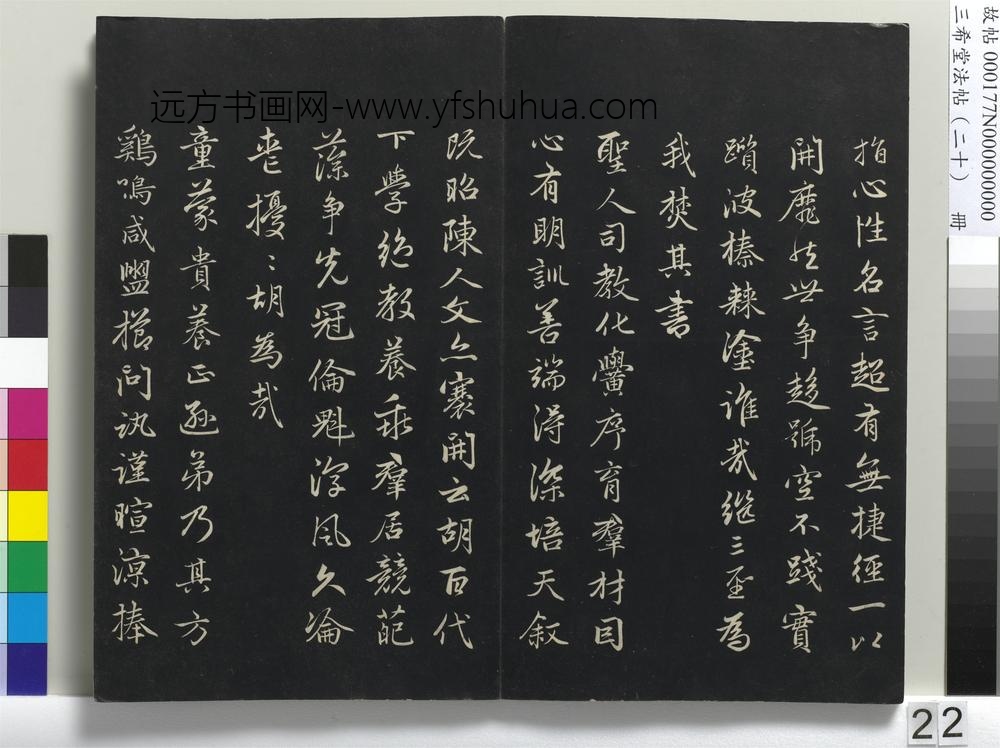 指心性名言超有無捷徑一以
開靡然世爭趨號空不踐實
躓彼榛棘塗誰哉繼三聖為
我焚其書
聖人司教化黌序育羣材因
心有明訓善端得深培天叙
既昭陳人文亦褰開云胡百代
下學絕教養乖羣居競葩
藻爭先冠倫魁淳風久淪
喪擾〻胡為哉
童蒙貴養正遜弟乃其方
鷄鳴咸盥櫛問訊謹暄涼捧
远方书画网-www.yfshuhua.com
故帖 000177N000000000
三希堂法帖（二十） 册
22